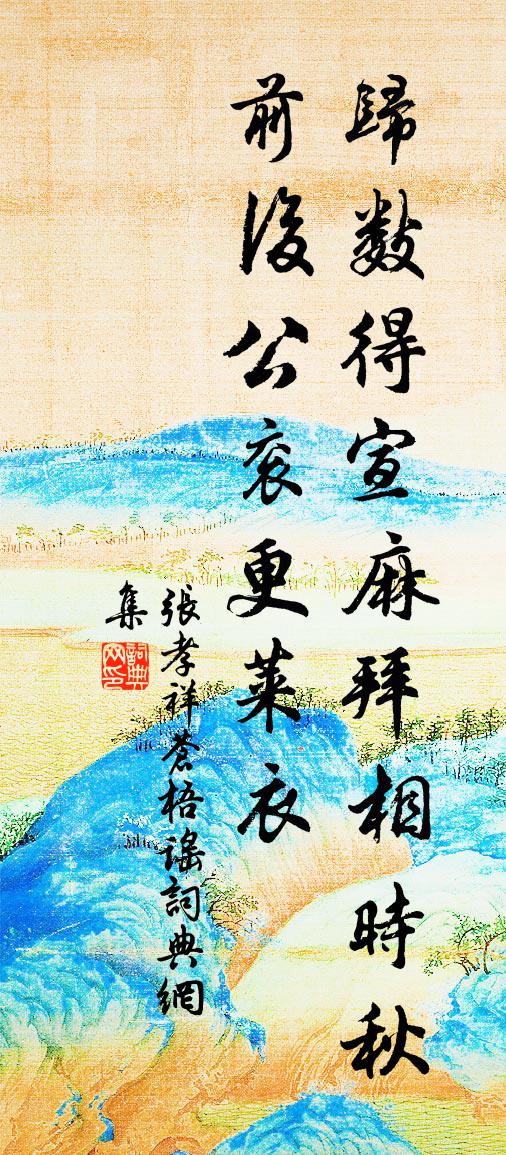 歸數得宣麻拜相時秋
前後公衮更萊衣
張孝祥蒼梧謠詞典網
集
詞典
网印